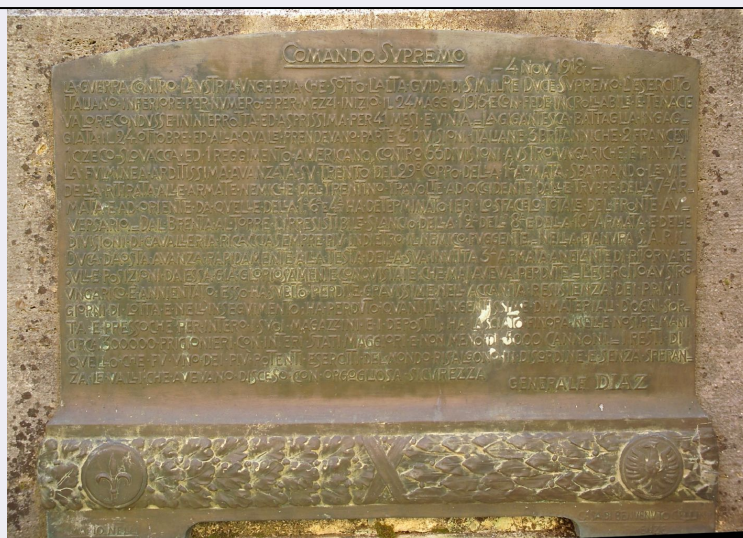 COMANDO SVPREMO
– 4 NOV. 1918 –
LA GVERRA CONTRO L'AVSTRIA VNGHERIA CHE SOTTO L'ALTA GVIDA DI S.M. IL RE DVCE SVPREMO L'ESERCITO
ITALIANO INFERIORE PER NVMERO E PER MEZZI INIZIÒ IL 24 MAGGIO 1915 E CON FEDE INCROLLABILE E TENACE
VALORE CONDVSSE ININTERROTTA ED ASPRISSIMA PER 41 MESI È VINTA LA GIGANTESCA BATTAGLIA INGAG
GIATA IL 24 OTTOBRE ED ALLA QVALE PRENDEVANO PARTE 51 DIVISIONI ITALIANE 3 BRITANNICHE 2 FRANCESI
1 CZECO SLOVACCA ED 1 REGGIMENTO AMERICANO CONTRO 63 DIVISIONI AVSTROVNGARICHE È FINITA
LA FVLMINEA ARDITISSIMA AVANZATA SV TRENTO DEL 29° CORPO DELLA 1ª ARMATA SBARRANDO LE VIE
DELLA RITIRATA ALLE ARMATE NEMICHE DEL TRENTINO TRAVOLTE AD OCCIDENTE DALLE TRVPPE DELLA 7ª AR
MATA E AD ORIENTE DA QVELLE DELLA 1ª 6ª E 4ª HA DETERMINATO IERI LO SFACELO TOTALE DEL FRONTE AV
VERSARIO DAL BRENTA AL TORRE L'IRRESISTIBILE SLANCIO DELLA 12ª DELL' 8ª DELLA 10ª ARMATA E DELLE
DIVISIONI DI CAVALLERIA RICACCIA SEMPRE PIÙ INDIETRO IL NEMICO FVGGENTE NELLA PIANVRA S.A.R. IL
DVCA D'AOSTA AVANZA RAPIDAMENTE ALLA TESTA DELLA SVA INVITTA 3ª ARMATA ANELANTE DI RITORNARE
SVLLE POSIZIONI DA ESSA GIÀ GLORIOSAMENTE CONQVISTATE CHE MAI AVEVA PERDVTE L'ESERCITO AVSTRO
VNGARICO È ANNIENTATO ESSO HA SVBITO PERDITE GRAVISSIME NELL'ACCANITA RESISTENZA DEI PRIMI
GIORNI DI LOTTA E NELL'INSEGVIMENTO HA PERDVTO QVANTITÀ INGENTISSIME DI MATERIALE DI OGNI SOR
TA E PRESSOCHÈ PER INTERO I SVOI MAGAZZINI E I DEPOSITI HA LASCIATO FINORA NELLE NOSTRE MANI
CIRCA 300000 PRIGIONIERI CON INTERI STATI MAGGIORI E NON MENO DI 5000 CANNONI I RESTI DI
QVELLO CHE FV VNO DEI PIÙ POTENTI ESERCITI DEL MONDO RISALGONO IN DISORDINE E SENZA SPERAN
ZA LE VALLI CHE AVEVANO DISCESO CON ORGOGLIOSA SICVREZZA
GENERALE DIAZ